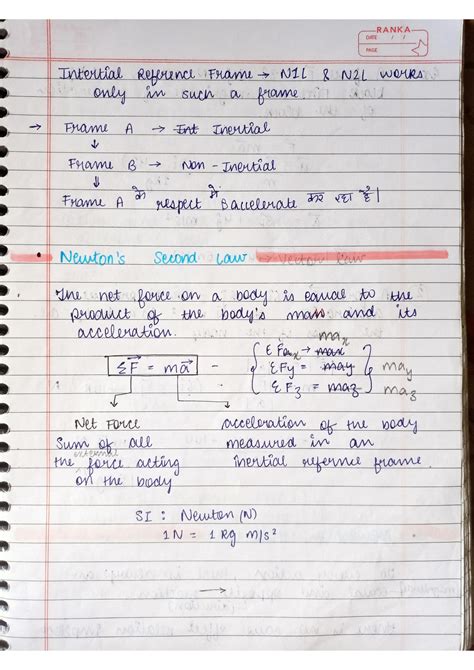 RANKA
DATE / /
PAGE
Intertial Reference Frame → N1L & N2L works
only in such a frame.
→ Frame A → Int Inertial
↓
Frame B → Non - Inertial
↓
Frame A के respect में B accelerate कर रहा है।
• Newton's Second Law → Vector Law
The net force on a body is equal to the
product of the body's mass and its
acceleration.
ΣF⃗ = ma⃗ - ΣFx → max max
ΣFy = may may
ΣFz = maz maz
Net Force
Sum of all
external
the force acting
on the body
acceleration of the body
measured in an
inertial refernce frame.
SI : Newton (N)
1N = 1 kg m/s²
→